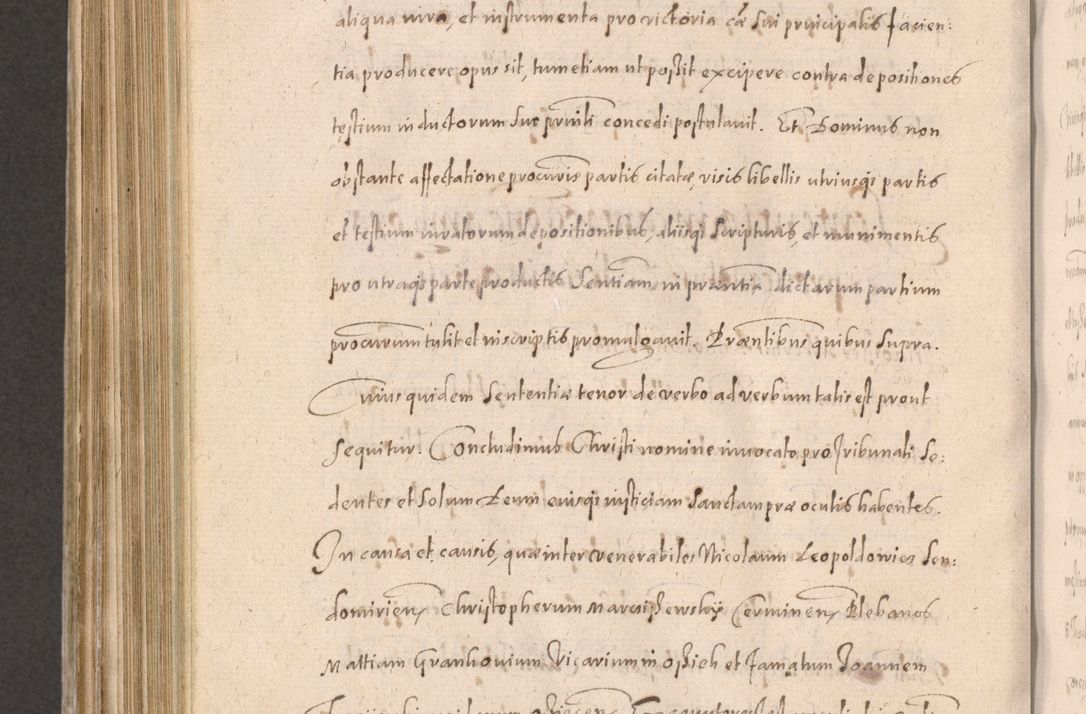 aliqua iura, et instrumenta pro victoria cae sui principalis facien:
tia producere opus sit, tum etiam ut possit excipere contra depositiones
testium inductorum suo prinli concedi postulavit. Et Dominus non
obstante affectatione procuris partis citatae, visis libellis utriusqs partis
et testium iuratorum depositionibus, aliisqs scripturis, et munimentis
pro utraqs parte productis Sentiam in praentia dictarum partium
procurum tulit et in scriptis promulgavit. Praentibus quibus supra.
Cuius quidem Sententiae tenor de verbo ad verbum talis est prout
sequitur. Concludimus Christi nomine invocato pro Tribunali se:
dentes et solum Deum eiusqs iusticiam sanctam prae oculis habentes.
In causa et causis, quae inter venerabiles Nicolaum Leopoldowicz Sen:
domirien, Christopherum Marcissewsky Cerminen, Plebanos
Mattiam Grankovium Vicarium in Opsieh et Jamatum Joannem